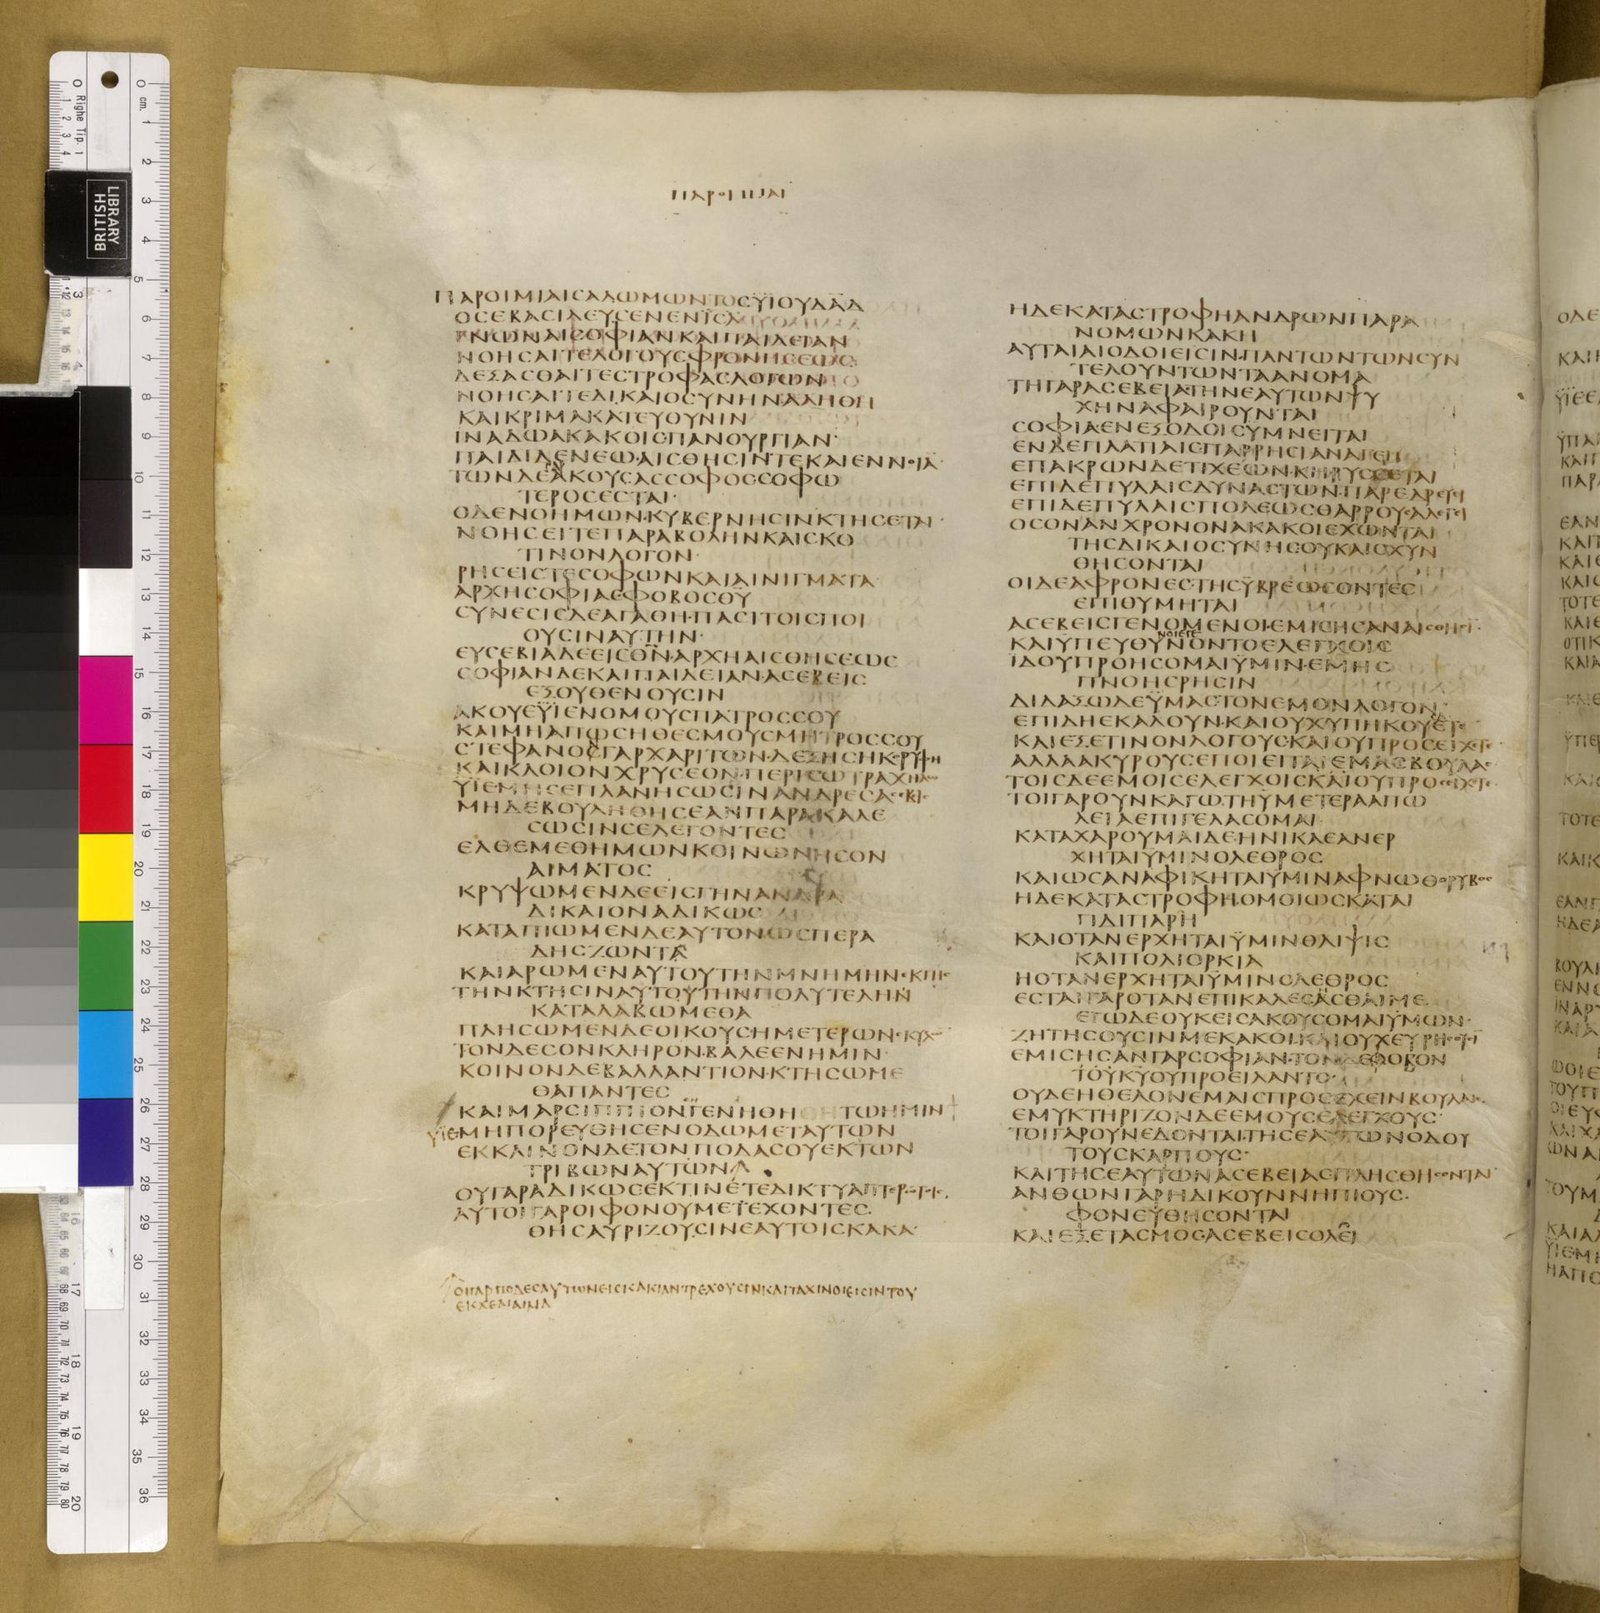 ΠΑΡΟΙΜΙΑΙ
ΠΑΡΟΙΜΙΑΙΣΑΛΩΜΩΝΤΟΣΫΙΟΥΔΑΔ
ΟΣΕΒΑΣΙΛΕΥΣΕΝΕΝΙΣΛ
ΓΝΩΝΑΙΣΟΦΙΑΝΚΑΙΠΑΙΔΕΙΑΝ
ΝΟΗΣΑΙΤΕΛΟΓΟΥΣΦΡΟΝΗΣΕΩΣ
ΔΕΞΑΣΘΑΙΤΕΣΤΡΟΦΑΣΛΟΓΩΝ
ΝΟΗΣΑΙΤΕΔΙΚΑΙΟΣΥΝΗΝΑΛΗΘΗ
ΚΑΙΚΡΙΜΑΚΑΤΕΥΘΥΝΙΝ
ΙΝΑΔΩΑΚΑΚΟΙΣΠΑΝΟΥΡΓΙΑΝ·
ΠΑΙΔΙΔΕΝΕΩ·ΑΙΣΘΗΣΙΝΤΕΚΑΙΕΝΝΟΙΑ
ΤΩΝΔΕΑΚΟΥΣΑΣΣΟΦΟΣΣΟΦΩ
ΤΕΡΟΣΕΣΤΑΙ·
ΟΔΕΝΟΗΜΩΝ·ΚΥΒΕΡΝΗΣΙΝΚΤΗΣΕΤΑΙ·
ΝΟΗΣΕΙΤΕΠΑΡΑΒΟΛΗΝΚΑΙΣΚΟ
ΤΙΝΟΝΛΟΓΟΝ·
ΡΗΣΕΙΣΤΕΣΟΦΩΝΚΑΙΑΙΝΙΓΜΑΤΑ
ΑΡΧΗΣΟΦΙΑΣΦΟΒΟΣΟΥ
ΣΥΝΕΣΙΣΔΕΑΓΑΘΗ·ΠΑΣΙΤΟΙΣΠΟΙ
ΟΥΣΙΝΑΥΤΗΝ·
ΕΥΣΕΒΙΑΔΕΕΙΣΘΝ·ΑΡΧΗΑΙΣΘΗΣΕΩΣ
ΣΟΦΙΑΝΔΕΚΑΙΠΑΙΔΕΙΑΝΑΣΕΒΕΙΣ
ΕΞΟΥΘΕΝΟΥΣΙΝ
ΑΚΟΥΕΫΙΕΝΟΜΟΥΣΠΑΤΡΟΣΣΟΥ
ΚΑΙΜΗΑΠΩΣΗΘΕΣΜΟΥΣΜΗΤΡΟΣΣΟΥ
ΣΤΕΦΑΝΟΣΓΑΡΧΑΡΙΤΩΝ·ΔΕΞΗΣΗΚΡΥΦΗ
ΚΑΙΚΛΟΙΟΝΧΡΥΣΕΟΝ·ΠΕΡΙΣΩΤΡΑΧΗΛΩ
ΫΙΕΜΗΣΕΠΛΑΝΗΣΩΣΙΝΑΝΔΡΕΣΑΣΕΒΙΣ
ΜΗΔΕΒΟΥΛΗΘΗΣΕΑΝΠΑΡΑΚΑΛΕ
ΣΩΣΙΝΣΕΛΕΓΟΝΤΕΣ
ΕΛΘΕΜΕΘΗΜΩΝΚΟΙΝΩΝΗΣΟΝ
ΑΙΜΑΤΟΣ
ΚΡΥΨΩΜΕΝΔΕΕΙΣΓΗΝΑΝΔΡΑ
ΔΙΚΑΙΟΝΑΔΙΚΩΣ
ΚΑΤΑΠΙΩΜΕΝΔΕΑΥΤΟΝΩΣΠΕΡΑ
ΔΗΣΖΩΝΤΑ
ΚΑΙΑΡΩΜΕΝΑΥΤΟΥΤΗΝΜΝΗΜΗΝ·ΕΚΓΗΣ
ΤΗΝΚΤΗΣΙΝΑΥΤΟΥΤΗΝΠΟΛΥΤΕΛΗΝ
ΚΑΤΑΛΑΒΩΜΕΘΑ
ΠΛΗΣΩΜΕΝΔΕΟΙΚΟΥΣΗΜΕΤΕΡΩΝ·
ΤΟΝΔΕΣΟΝΚΛΗΡΟΝ·ΒΑΛΕΕΝΗΜΙΝ·
ΚΟΙΝΟΝΔΕΒΑΛΛΑΝΤΙΟΝ·ΚΤΗΣΩΜΕ
ΘΑΠΑΝΤΕΣ
ΚΑΙΜΑΡΣΙΠΠΙΟΝΓΕΝΗΘΗΤΩΗΜΙΝ
ΫΙΕΜΗΠΟΡΕΥΘΗΣΕΝΟΔΩΜΕΤΑΥΤΩΝ
ΕΚΚΛΙΝΟΝΔΕΤΟΝΠΟΔΑΣΟΥΕΚΤΩΝ
ΤΡΙΒΩΝΑΥΤΩΝ
ΟΥΓΑΡΑΔΙΚΩΣΕΚΤΙΝΕΤΕΔΙΚΤΥΑΠΤΕΡΩΤΟΙΣ
ΑΥΤΟΙΓΑΡΟΙΦΟΝΟΥΜΕΤΕΧΟΝΤΕΣ
ΘΗΣΑΥΡΙΖΟΥΣΙΝΕΑΥΤΟΙΣΚΑΚΑ·
ΟΙΓΑΡΠΟΔΕΣΑΥΤΩΝΕΙΣΚΑΚΙΑΝΤΡΕΧΟΥΣΙΝΚΑΙΤΑΧΙΝΟΙΕΙΣΙΝΤΟΥ
ΕΚΧΕΑΙΑΙΜΑ
ΗΔΕΚΑΤΑΣΤΡΟΦΗΑΝΔΡΩΝΠΑΡΑ
ΝΟΜΩΝΚΑΚΗ
ΑΥΤΑΙΑΙΟΔΟΙΕΙΣΙΝΠΑΝΤΩΝΤΩΝΣΥΝ
ΤΕΛΟΥΝΤΩΝΤΑΑΝΟΜΑ
ΤΗΓΑΡΑΣΕΒΕΙΑΤΗΝΕΑΥΤΩΝΨΥ
ΧΗΝΑΦΑΙΡΟΥΝΤΑΙ
ΣΟΦΙΑΕΝΕΞΟΔΟΙΣΥΜΝΕΙΤΑΙ
ΕΝΔΕΠΛΑΤΙΑΙΣΠΑΡΡΗΣΙΑΝΑΓΕΙ
ΕΠΑΚΡΩΝΔΕΤΙΧΕΩΝΚΗΡΥΣΣΕΤΑΙ
ΕΠΙΔΕΠΥΛΑΙΣΔΥΝΑΣΤΩΝ·ΠΑΡΕΔΡΕΥΙ
ΕΠΙΔΕΠΥΛΑΙΣΠΟΛΕΩΣΘΑΡΡΟΥΣΑΛΕΓΙ
ΟΣΟΝΑΝΧΡΟΝΟΝΑΚΑΚΟΙΕΧΩΝΤΑΙ
ΤΗΣΔΙΚΑΙΟΣΥΝΗΣΟΥΚΑΙΣΧΥΝ
ΘΗΣΟΝΤΑΙ
ΟΙΔΕΑΦΡΟΝΕΣΤΗΣΫΒΡΕΩΣΟΝΤΕΣ
ΕΠΙΘΥΜΗΤΑΙ
ΑΣΕΒΕΙΣΓΕΝΟΜΕΝΟΙΕΜΙΣΗΣΑΝΑΙΣΘΗΣΙ
ΚΑΙΫΠΕΥΘΥΝΟΝΤΟΕΛΕΓΧΟΙΣ
ΝΟΙΕΓΕ
ΙΔΟΥΠΡΟΗΣΟΜΑΙΫΜΙΝ·ΕΜΗΣ
ΠΝΟΗΣΡΗΣΙΝ
ΔΙΔΑΞΩΔΕΫΜΑΣΤΟΝΕΜΟΝΛΟΓΟΝ·
ΕΠΙΔΗΕΚΑΛΟΥΝ·ΚΑΙΟΥΧΥΠΗΚΟΥΣΑΤΕ
ΚΑΙΕΞΕΤΙΝΟΝΛΟΓΟΥΣ·ΚΑΙΟΥΠΡΟΣΕΙΧΕΤΕ
ΑΛΛΑΑΚΥΡΟΥΣΕΠΟΙΕΙΤΑΙΕΜΑΣΒΟΥΛΑΣ
ΤΟΙΣΔΕΕΜΟΙΣΕΛΕΓΧΟΙΣΚΑΙΟΥΠΡΟΣΕΙΧΕΤΕ
ΤΟΙΓΑΡΟΥΝΚΑΓΩ·ΤΗΫΜΕΤΕΡΑΑΠΩ
ΛΕΙΑΕΠΙΓΕΛΑΣΟΜΑΙ·
ΚΑΤΑΧΑΡΟΥΜΑΙΔΕΗΝΙΚΑΕΑΝΕΡ
ΧΗΤΑΙΥΜΙΝΟΛΕΘΡΟΣ
ΚΑΙΩΣΑΝΑΦΙΚΗΤΑΙΫΜΙΝΑΦΝΩΘΟΡΥΒΟΣ
ΗΔΕΚΑΤΑΣΤΡΟΦΗ·ΟΜΟΙΩΣΚΑΤΑΙ
ΓΙΔΙΠΑΡΗ
ΚΑΙΟΤΑΝΕΡΧΗΤΑΙΫΜΙΝΘΛΙΨΙΣ
ΚΑΙΠΟΛΙΟΡΚΙΑ
ΗΟΤΑΝΕΡΧΗΤΑΙΫΜΙΝΟΛΕΘΡΟΣ
ΕΣΤΑΙΓΑΡΟΤΑΝΕΠΙΚΑΛΕΣΑΣΘΑΙΜΕ
ΕΓΩΔΕΟΥΚΕΙΣΑΚΟΥΣΟΜΑΙΫΜΩΝ·
ΖΗΤΗΣΟΥΣΙΝΜΕΚΑΚΟΙ·ΚΑΙΟΥΧΕΥΡΗΣΟΥΣΙ
ΕΜΙΣΗΣΑΝΓΑΡΣΟΦΙΑΝ·ΤΟΝΔΕΦΟΒΟΝ
ΤΟΥΚΥΟΥΠΡΟΕΙΛΑΝΤΟ·
ΟΥΔΕΗΘΕΛΟΝΕΜΑΙΣΠΡΟΣΕΧΕΙΝΒΟΥΛΑΙΣ
ΕΜΥΚΤΗΡΙΖΟΝΔΕΕΜΟΥΣΕΛΕΓΧΟΥΣ·
ΤΟΙΓΑΡΟΥΝΕΔΟΝΤΑΙ·ΤΗΣΕΑΥΤΩΝΟΔΟΥ
ΤΟΥΣΚΑΡΠΟΥΣ·
ΚΑΙΤΗΣΕΑΥΤΩΝΑΣΕΒΕΙΑΣΠΛΗΣΘΗΣΟΝΤΑΙ
ΑΝΘΩΝΓΑΡΗΔΙΚΟΥΝΝΗΠΙΟΥΣ·
ΦΟΝΕΥΘΗΣΟΝΤΑΙ
ΚΑΙΕΞΕΤΑΣΜΟΣΑΣΕΒΕΙΣΟΛΕΙ
BRITISH
LIBRARY